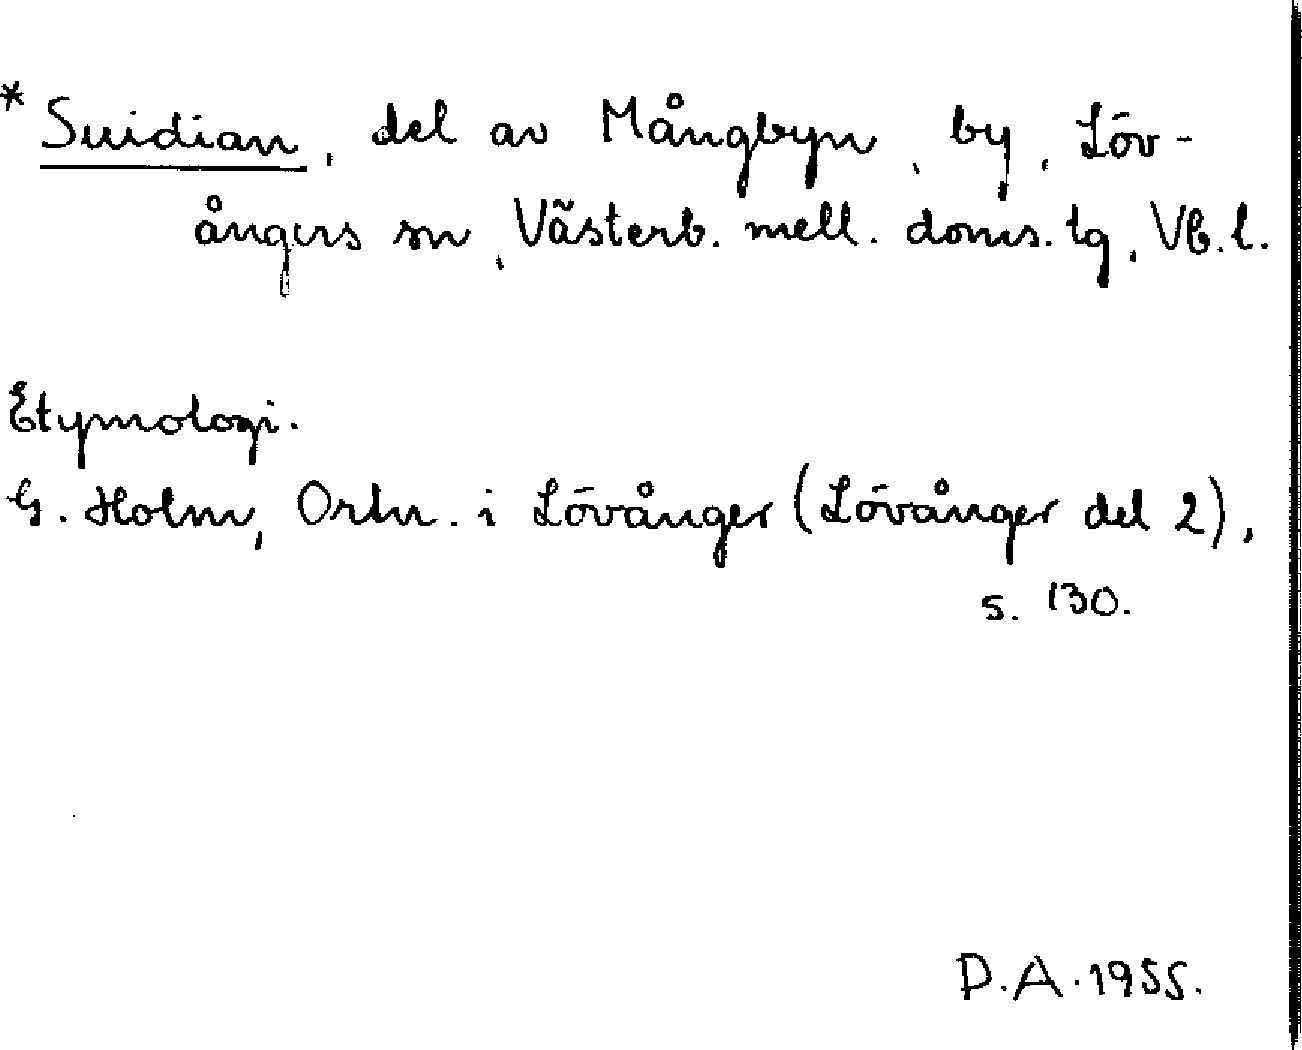 * Suidian, del av Mångbyn, by, Löv-
ångers sn, Västerb. mell. doms. tg, Vb. l.
Etymologi.
G. Holm, Ortn. i Lövånger (Lövånger del 2),
s. 130.
D.A. 1955.